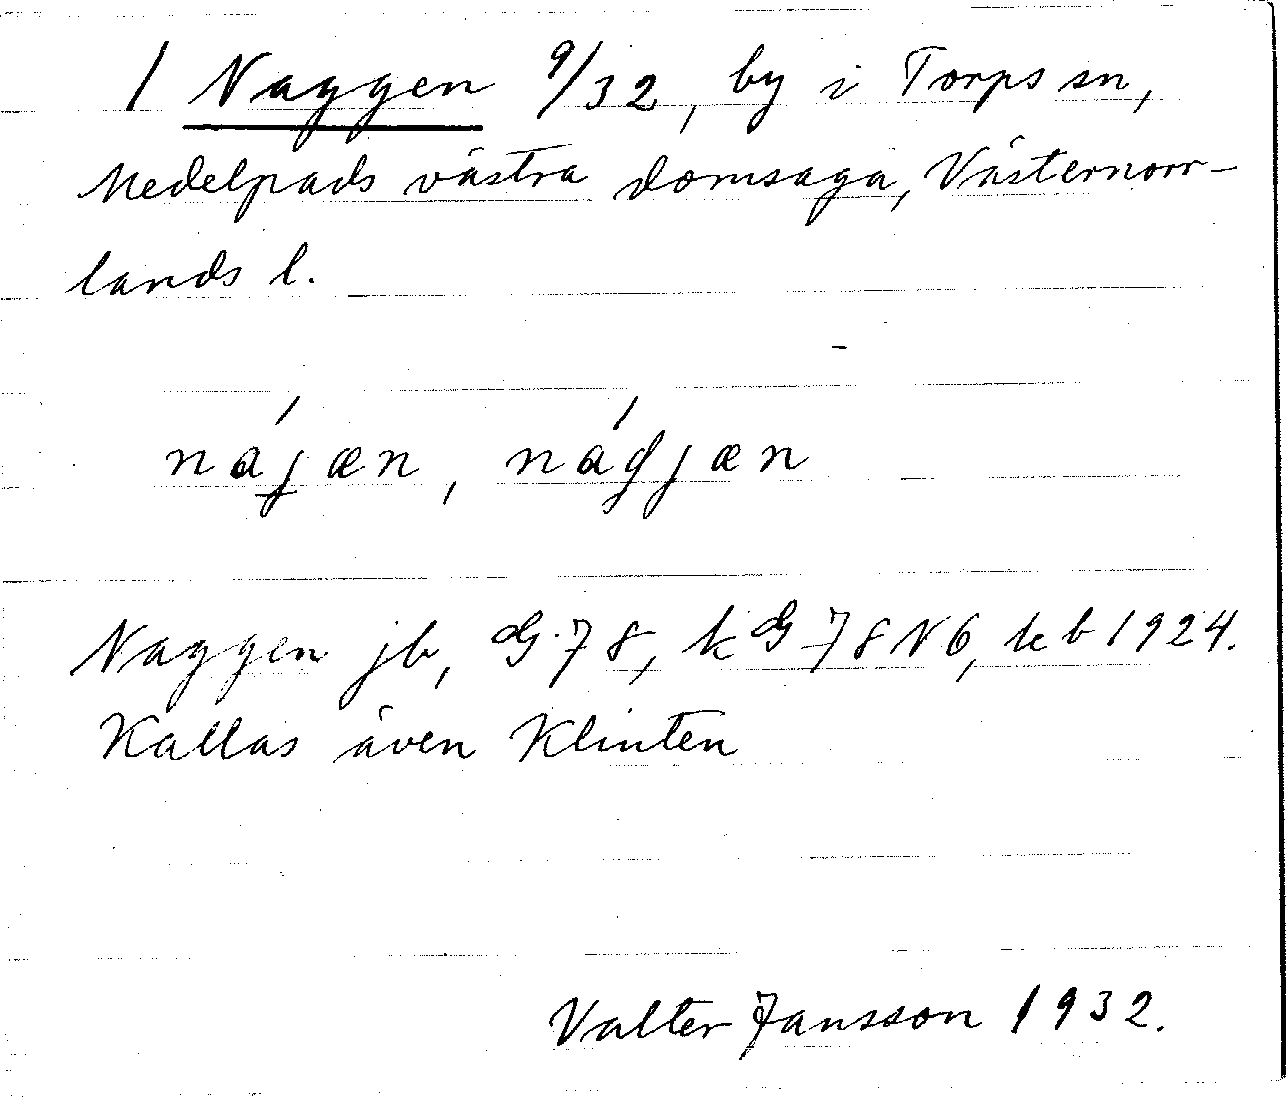 1 Naggen 9/32, by i Torps sn,
Medelpads västra domsaga, Västernorr-
lands l.
nájæn, nágjæn
Naggen jb, G 78, k G 78 N6, leb 1924.
Kallas även Klinten
Valter Jansson 1932.